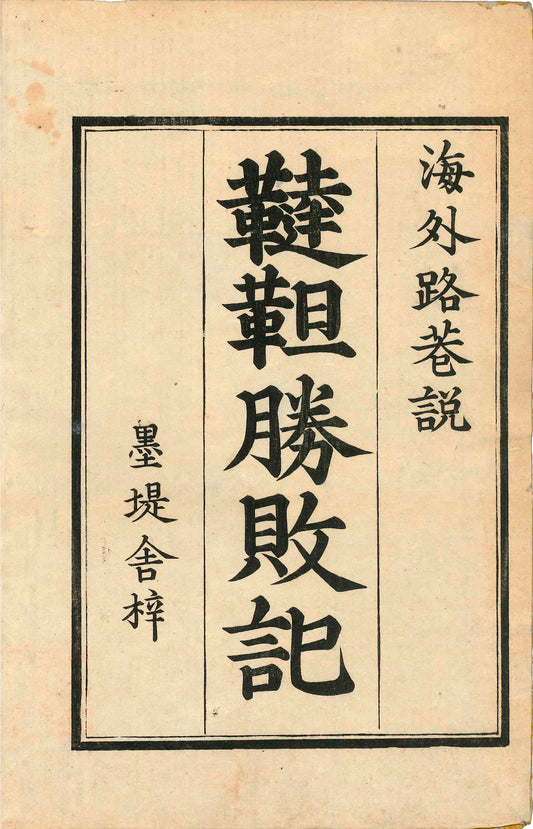 海外路巷説
韃靼勝敗記
墨堤舎梓